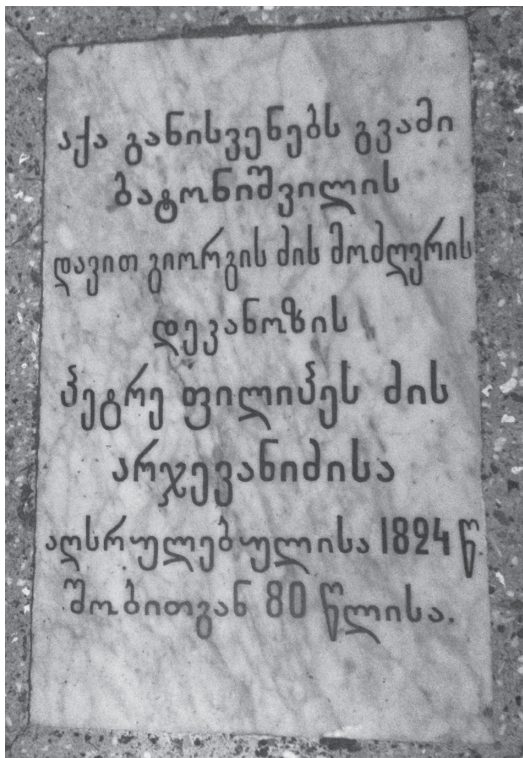 აქა განისვენებს გვამი
ბატონიშვილის
დავით გიორგის ძის მოძღვრის
დეკანოზის
პეტრე ფილიპეს ძის
არჯევანიძისა
აღსრულებულისა 1824 წ.
შობითგან 80 წლისა.